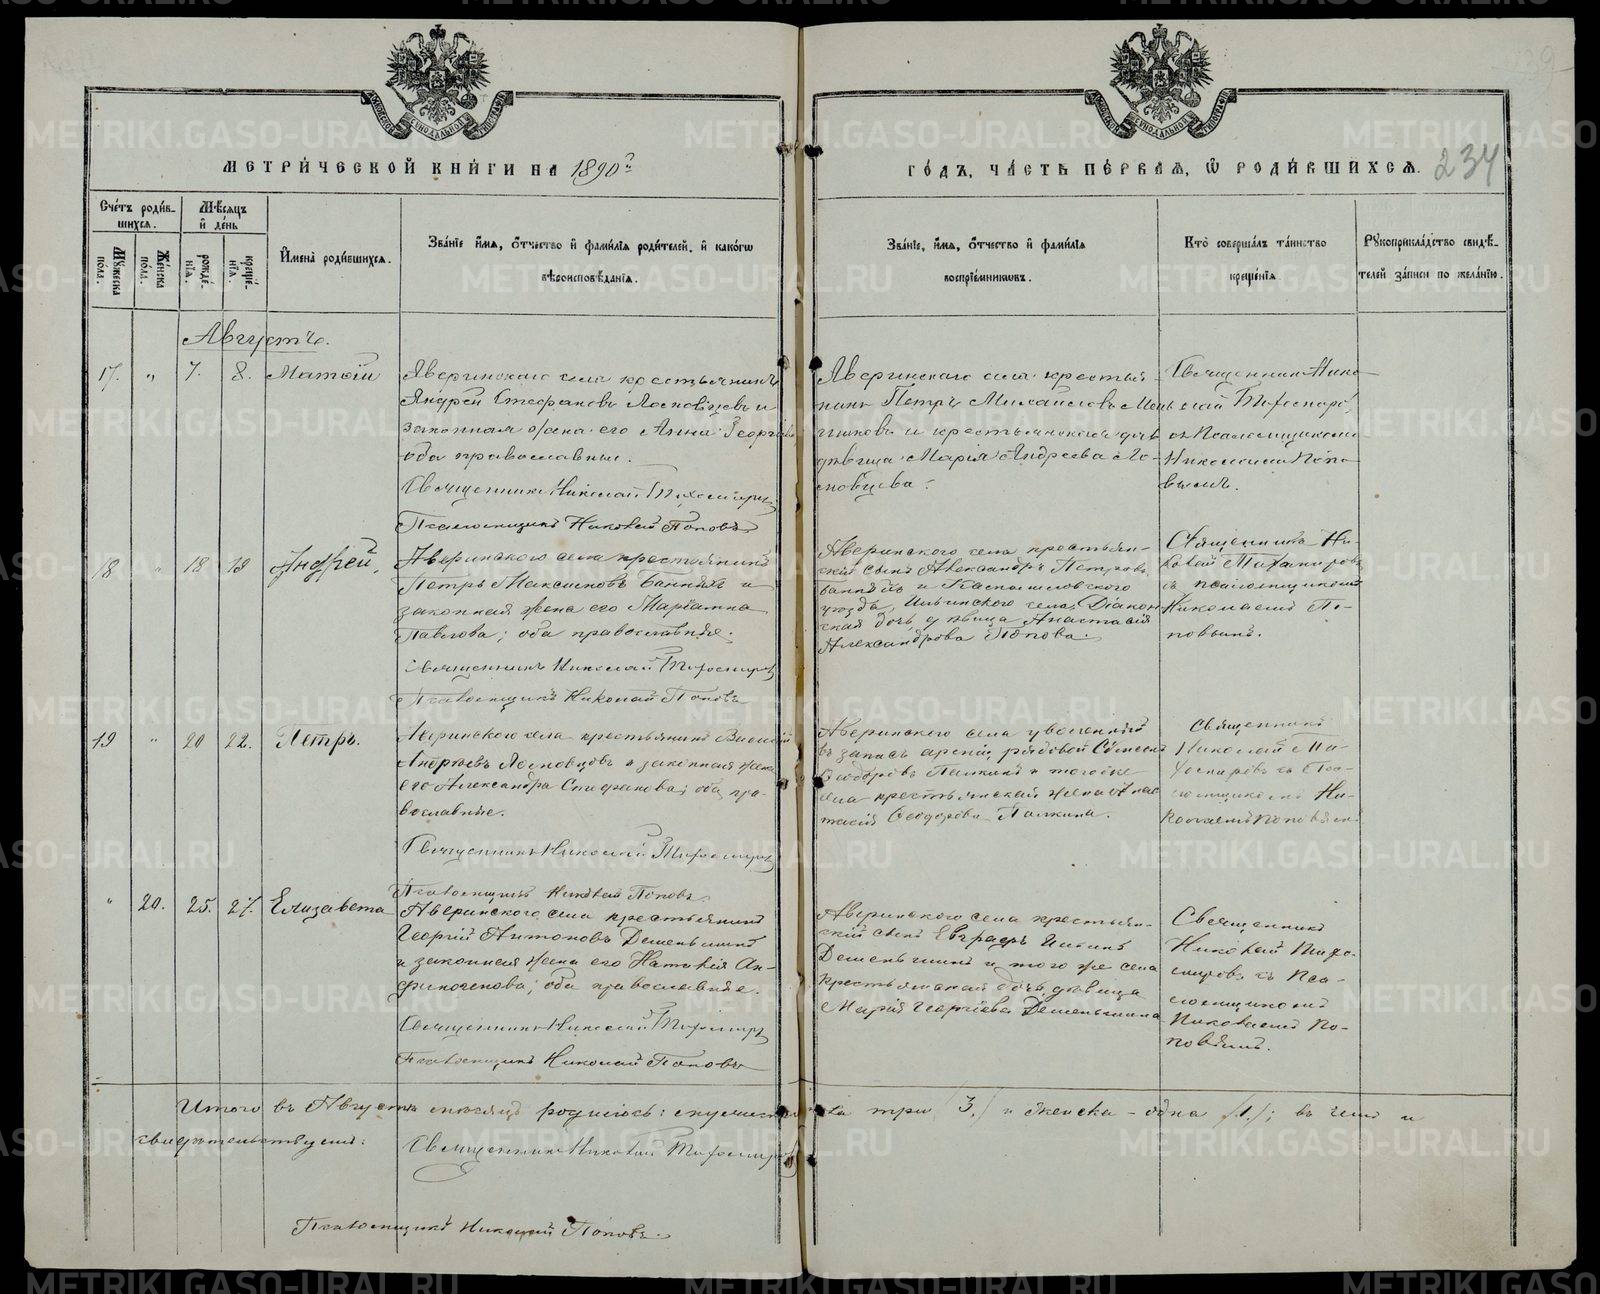 МЕТРИ́ЧЕСКОЙ КНИ́ГИ НА 1890й
ГО́ДЪ, ЧА́СТЬ ПЕ́РВАѦ, Ѽ РОДИ́ВШИХСѦ. 234
Сче́тъ роди́в-
шихсѧ.
Мꙋ́жеска по́ла.
Же́нска по́ла.
Мѣ́сѧцъ
и҆ де́нь
рожде́-
нїѧ.
креще́-
нїѧ.
И҆мена̀ роди́вшихсѧ.
Зва́нїе и҆́мѧ, о҆́тчество и҆ фами́лїѧ роди́телей, и҆ како́гѡ
вѣроисповѣ́данїѧ.
Зва́нїе, и҆́мѧ, о҆́тчество и҆ фами́лїѧ
воспрїе́мниковъ.
Кто̀ соверша́лъ та́инство
креще́нїѧ.
Рꙋкоприкла́дство свидѣ́-
телей за́писи по жела́нїю.
Августъ.
17. " 7. 8. Матѳiй
Аверинскаго села крестьянинъ
Андрей Стефановъ Лосковцевъ и
законная жена его Анна Георгiева
оба православные.
Священникъ Николай Тихомировъ
Псаломщикъ Николай Поповъ
Аверинскаго села крестья-
нинъ Петръ Михайловъ
и крестьянская дочь
дѣвица Марья Андреева
Священникъ Нико-
лай Тихомиро-
съ Псаломщикомъ
Николаемъ Попо-
вымъ.
18 " 18 19 Андрей.
Аверинского села крестьянинъ
Петръ Максимовъ Банныхъ и
законная жена его Марiамна
Павлова; оба православные.
Священникъ Николай Тихомировъ
Псаломщикъ Николай Поповъ
Аверинского села крестьян-
скiй сынъ Александръ Петровъ
Банныхъ и
уѣзда, Ильинского села, Дiакон-
ская дочь дѣвица Анастасiя
Александрова Попова.
Священникъ Ни-
колай Тихомировъ
съ псаломщикомъ
Николаемъ По-
повымъ.
19 " 20 22. Петръ.
Аверинского села крестьянинъ Василiй
Андреевъ и законная жена
его Александра Стефанова; оба пра-
вославные.
Священникъ Николай Тихомировъ
Псаломщикъ Николай Поповъ
Аверинского села уволенный
въ запасъ армiи рядовой Симеонъ
Ѳеодоровъ Палкинъ и того же
села крестьянская жена Анас-
тасiя Ѳеодорова Палкина.
Священникъ
Николай Ти-
хомировъ съ Пса-
ломщикомъ Ни-
колаемъ Поповымъ
" 20. 25. 27. Елизавета
Аверинского села крестьянинъ
Георгiй Антоновъ Деменьшинъ
и законная жена его Наталiя Ан-
финогенова; оба православные.
Священникъ Николай Тихомировъ
Псаломщикъ Николай Поповъ
Аверинского села крестьян-
скiй сынъ Евграфъ
Деменьшинъ и того же села
крестьянская дочь дѣвица
Марiя Георгiева Деменьшина
Священникъ
Николай Тихо-
мировъ съ Пса-
ломщикомъ
Николаемъ По-
повымъ.
Итого въ Августѣ мѣсяцѣ родилось: мужеска три /3./ и женска – одна /1./; въ чемъ и
свидѣтельствуемъ:
Священникъ Николай Тихомировъ
Псаломщикъ Николай Поповъ.
METRIKI.GASO-URAL.RU